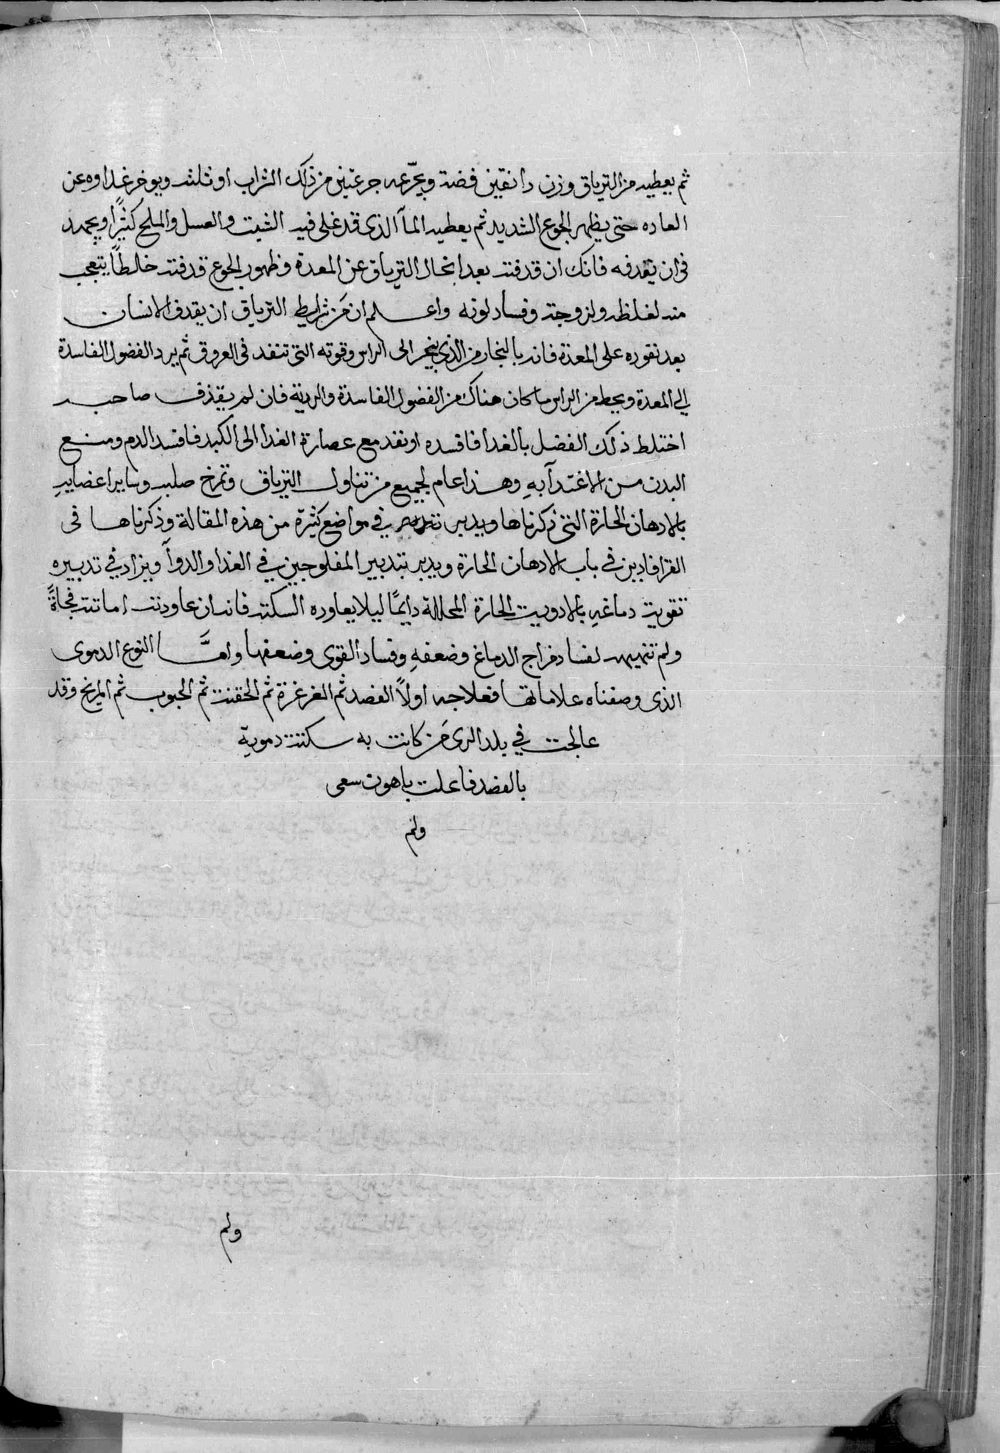 ثم يعطيه من الترياق وزن دانقين فضة ويجرّعه جرعتين من ذلك الشراب او ثلث ويوخر غداوه عن
العاده حتى يظهر الجوع الشديد ثم يعطيه المآ الذى قد غلى فيه الشبت والعسل والملح كثيرًا ويجهد
فى ان يقدفه فانك ان قدفت بعد انحال الترياق عن المعدة وظهور الجوع قدفت خالطًا يتعجب
منه لغلظه ولزوجته وفساد لونه واعلم ان مَن شرايط الترياق ان يقدف الانسان
بعد نقوره على المعدة فانه بالبخار من الذى ينجر الى الراس وقوته التى تنفد فى العروق ثم يرد الفضول الفاسدة
الى المعدة ويحط من الراس ما كان هناك من الفضول الفاسدة والردية فان لم يقذف صاحبه
اختلط ذلك الفضل بالغدا فافسده او نفد مع عصارة الغدا الى الكبد فافسد الدم ومنع
البدن من الاغتدآ به وهذا عام لجميع من تناول الترياق وتمرخ صلبه وساير اعضايه
بالادهان الحارة التى ذكرناها ويدبر في مواضع كثيرة من هذه المقالة وذكرناها فى
القرافادين في باب الادهان الحارة ويدبر بتدبير المفلوجين في الغدا والدوآ ويزاد في تدبيره
تقوية دماغه بالادوية الحارة المحللة دايمًا ليلا يعاوده السكته فانه ان عاودته اماتته فجاةً
ولم تمهله لفساد مزاج الدماغ وضعفهِ وفساد القوى وضعفها وامَّا النوع الدموى
الذى وصفناه علاماتها فعلاجه اولاً الفصد ثم الغرغرة ثم الحقنة ثم الحبوب ثم المريخ وقد
عالجت في بلد الرى مَن كانت به سكتة دمويةٍ
بالفصد فاعلت باهون سعى
ولم
ولم